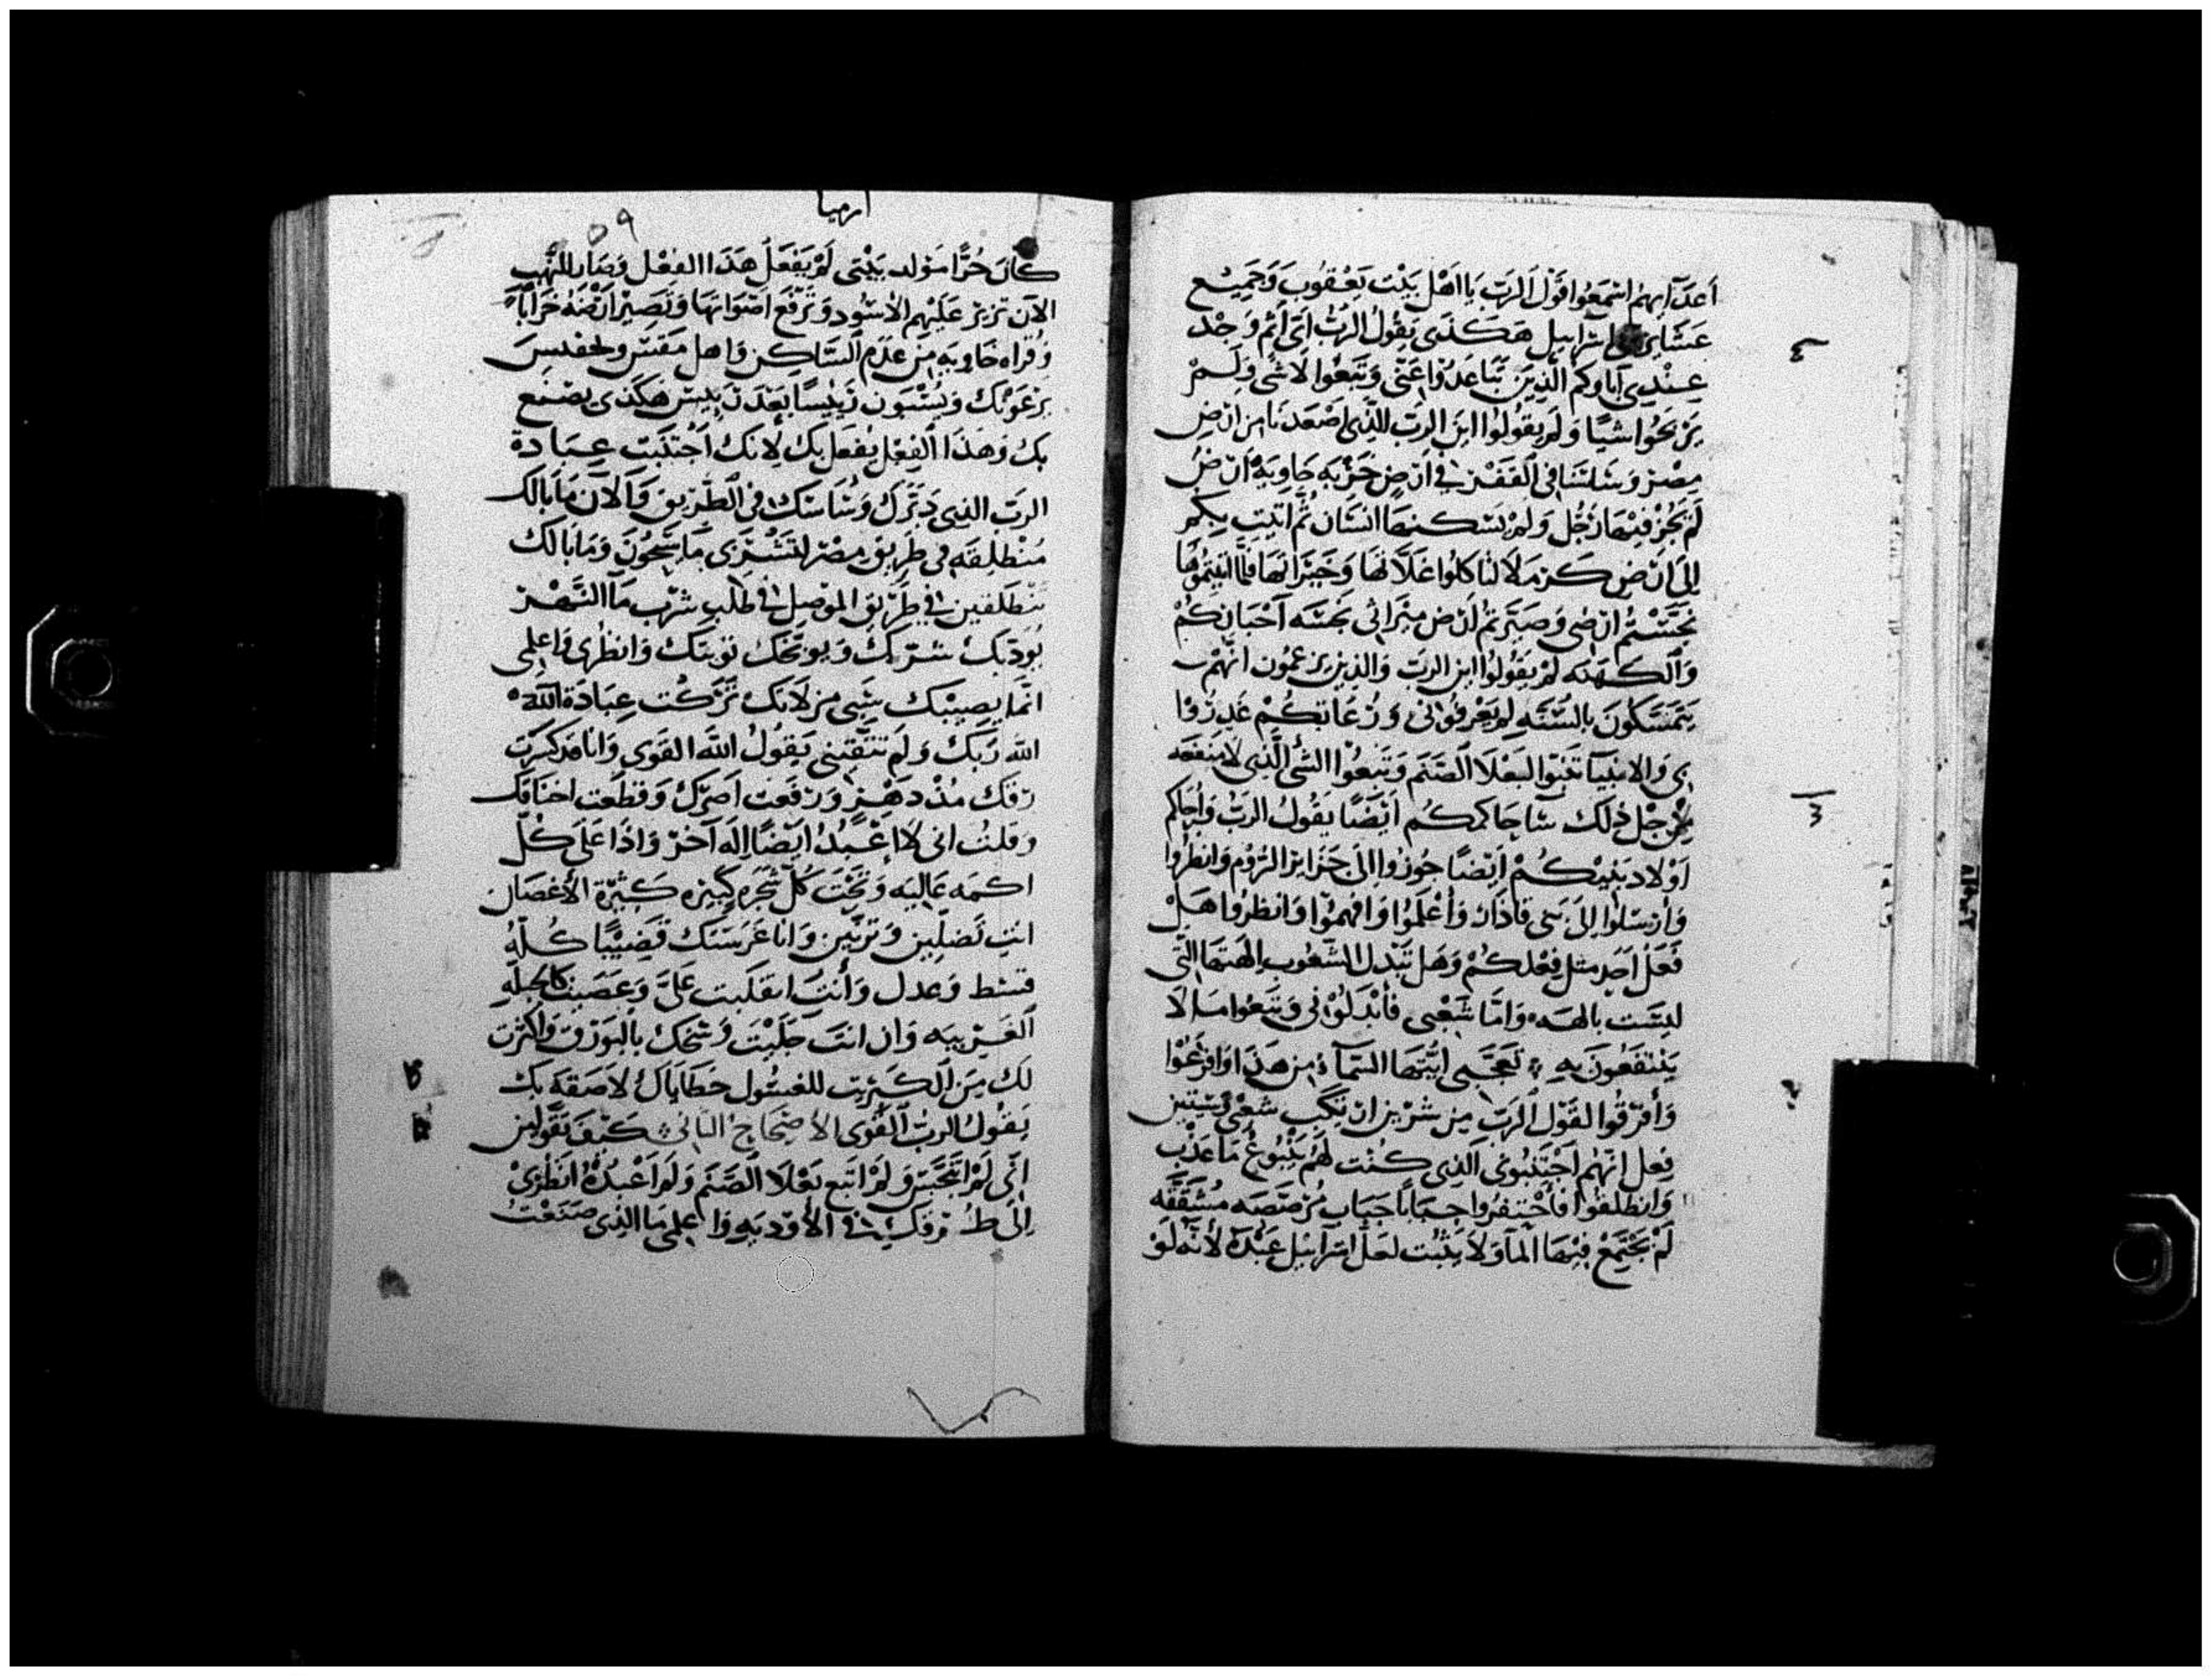 أعدآايهم اسمعوا قول الرب يا اهل بيت يعقوب وجميع
عشاير اسراييل هكذى يقول الرب اى اثم وجد
عندي آباوكم الذين تباعدوا عنى وتبعوا لا شى ولم
يربحوا شيا ولم يقولوا اين الرب الذي اصعدنا من ارض
مصر وساسنا في القفر في ارض خربه خاويه ارض
لم يجز فيها رجل ولم يسكنها انسان ثم اتيت بكم
الى ارض كرملا لتاكلوا غلاتها وخيراتها فلما اتيتموها
نجستم ارضى وصيرتم ارض ميراثى نجسه احباركم
والكهنه لم يقولوا اين الرب والذين يزعمون انهم
يتمسكون بالسنه لم يعرفونى ورعاتكم غدروا
بى والانبيا تنبوا لبعلا الصنم وتبعوا الشى الذي لا منفعه
من اجل ذلك ساحاكمكم ايضا يقول الرب واحاكم
اولاد بنيكم ايضا جوزوا الى جزاير الروم وانظروا
وارسلوا الى بنى قاذار واعلموا وافهموا وانظروا هل
فعل احد مثل فعلكم وهل تبدل الشعوب الهتها التى
ليست بالهه واما شعبى فابدلونى وتبعوا ما لا
ينتفعون به تعجبى ايتها السمآء من هذا وافزعوا
وافرقوا لقول الرب من شرين ارتكب شعبى شيين
فعل انهم اجتنبونى الذى كنت لهم ينبوع ما عذب
وانطلقوا فاحتفروا جبابا جباب مرصصه مشققه
لم يجتمع فيها المآ ولا يثبت لعل اسراييل عبده لانه لو
ارميا
٥٩
كان حرا مولد بيتى لم يفعل هذا الفعل وصار للنهب
الان تزير عليهم الاسود وترفع اصواتها وتصير ارضه خرابا
وقراه خاويه من عدم الساكن واهل مفيس ولحفنيس
يرعونك ويسبون هكذى يصنع
بك وهذا الفعل يفعل بك لانك اجتنبت عبادة
الرب الذي دبرك وساسك في الطريق والآن ما بالك
منطلقه في طريق مصر لتشربى ما سيحون وما بالك
تنطلقين في طريق الموصل في طلب شرب مآ النهر
يودبك شرك ويوبخك توبتك وانظرى واعلمى
انما يصيبك شى مر لانك تركت عبادة الله
الله ربك ولم تتقينى يقول الله القوى وانا قد كسرت
رقك مذ دهر ورفعت اصرك وقطعت اخناقك
وقلت انى لا اعبد ايضا اله آخر واذا على كل
اكمه عاليه وتحت كل شجره كبيره كثيرة الاغصان
انت تضلين وتزنين وانا غرستك قضيبا كله
قسط وعدل وانت انقلبت على وعصيت كالجبله
الغريبيه وان انت جليت وسخك بالبورق واكثرت
لك من الكبريت للغسول خطاياك لاصقه بك
يقول الرب القوى الاصحاح الثانى كيف تقولين
انى لم اتنجس ولم اتبع بعلا الصنم ولم اعبده انظرى
الى طرقك في الاوديه واعلمى ما الذى صنعت